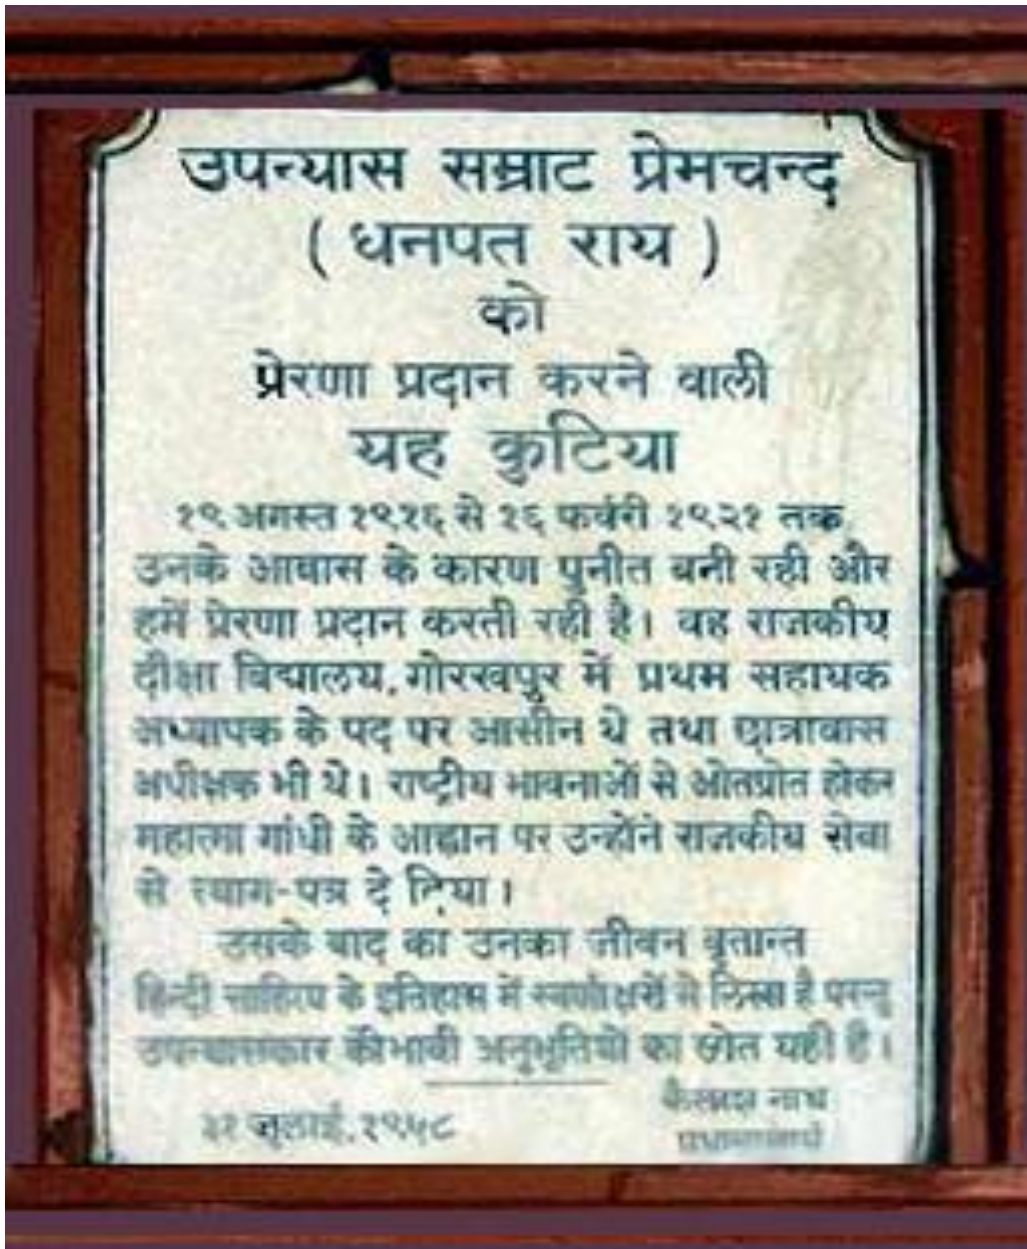 उपन्यास सम्राट प्रेमचन्द
( धनपत राय )
को
प्रेरणा प्रदान करने वाली
यह कुटिया
१९ अगस्त १९१६ से १६ फर्वरी १९२१ तक
उनके आवास के कारण पुनीत बनी रही और
हमें प्रेरणा प्रदान करती रही है। वह राजकीय
दीक्षा विद्यालय, गोरखपुर में प्रथम सहायक
अध्यापक के पद पर आसीन थे तथा छात्रावास
अधीक्षक भी थे। राष्ट्रीय भावनाओं से ओतप्रोत होकर
महात्मा गांधी के आह्वान पर उन्होंने राजकीय सेवा
से त्याग-पत्र दे दिया।
उसके बाद का उनका जीवन वृतान्त
हिन्दी साहित्य के इतिहास में स्वर्णाक्षरों में लिखा है परन्तु
उपन्यासकार की भावी अनुभूतियों का स्रोत यही है।
कैलाश नाथ
जुलाई, १९५८